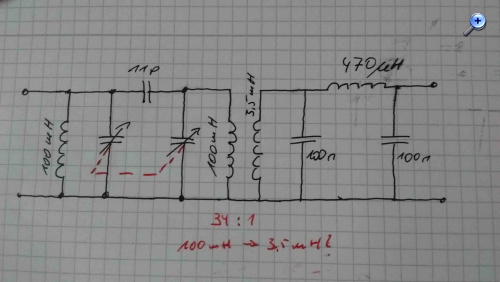 11p
470µH
100mH
100mH
3,5mH
100n
100n
34 : 1
100mH → 3,5mH?